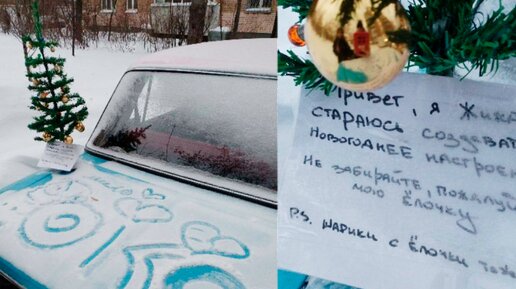 ПРИВЕТ, Я ЖИГ
СТАРАЮСЬ СОЗДАВАТ
НОВОГОДНЕЕ НАСТРОЕН
НЕ ЗАБИРАЙТЕ, ПОЖАЛУЙ
МОЮ ЁЛОЧКУ
P.S. ШАРИКИ С ЁЛОЧКИ ТОЖ